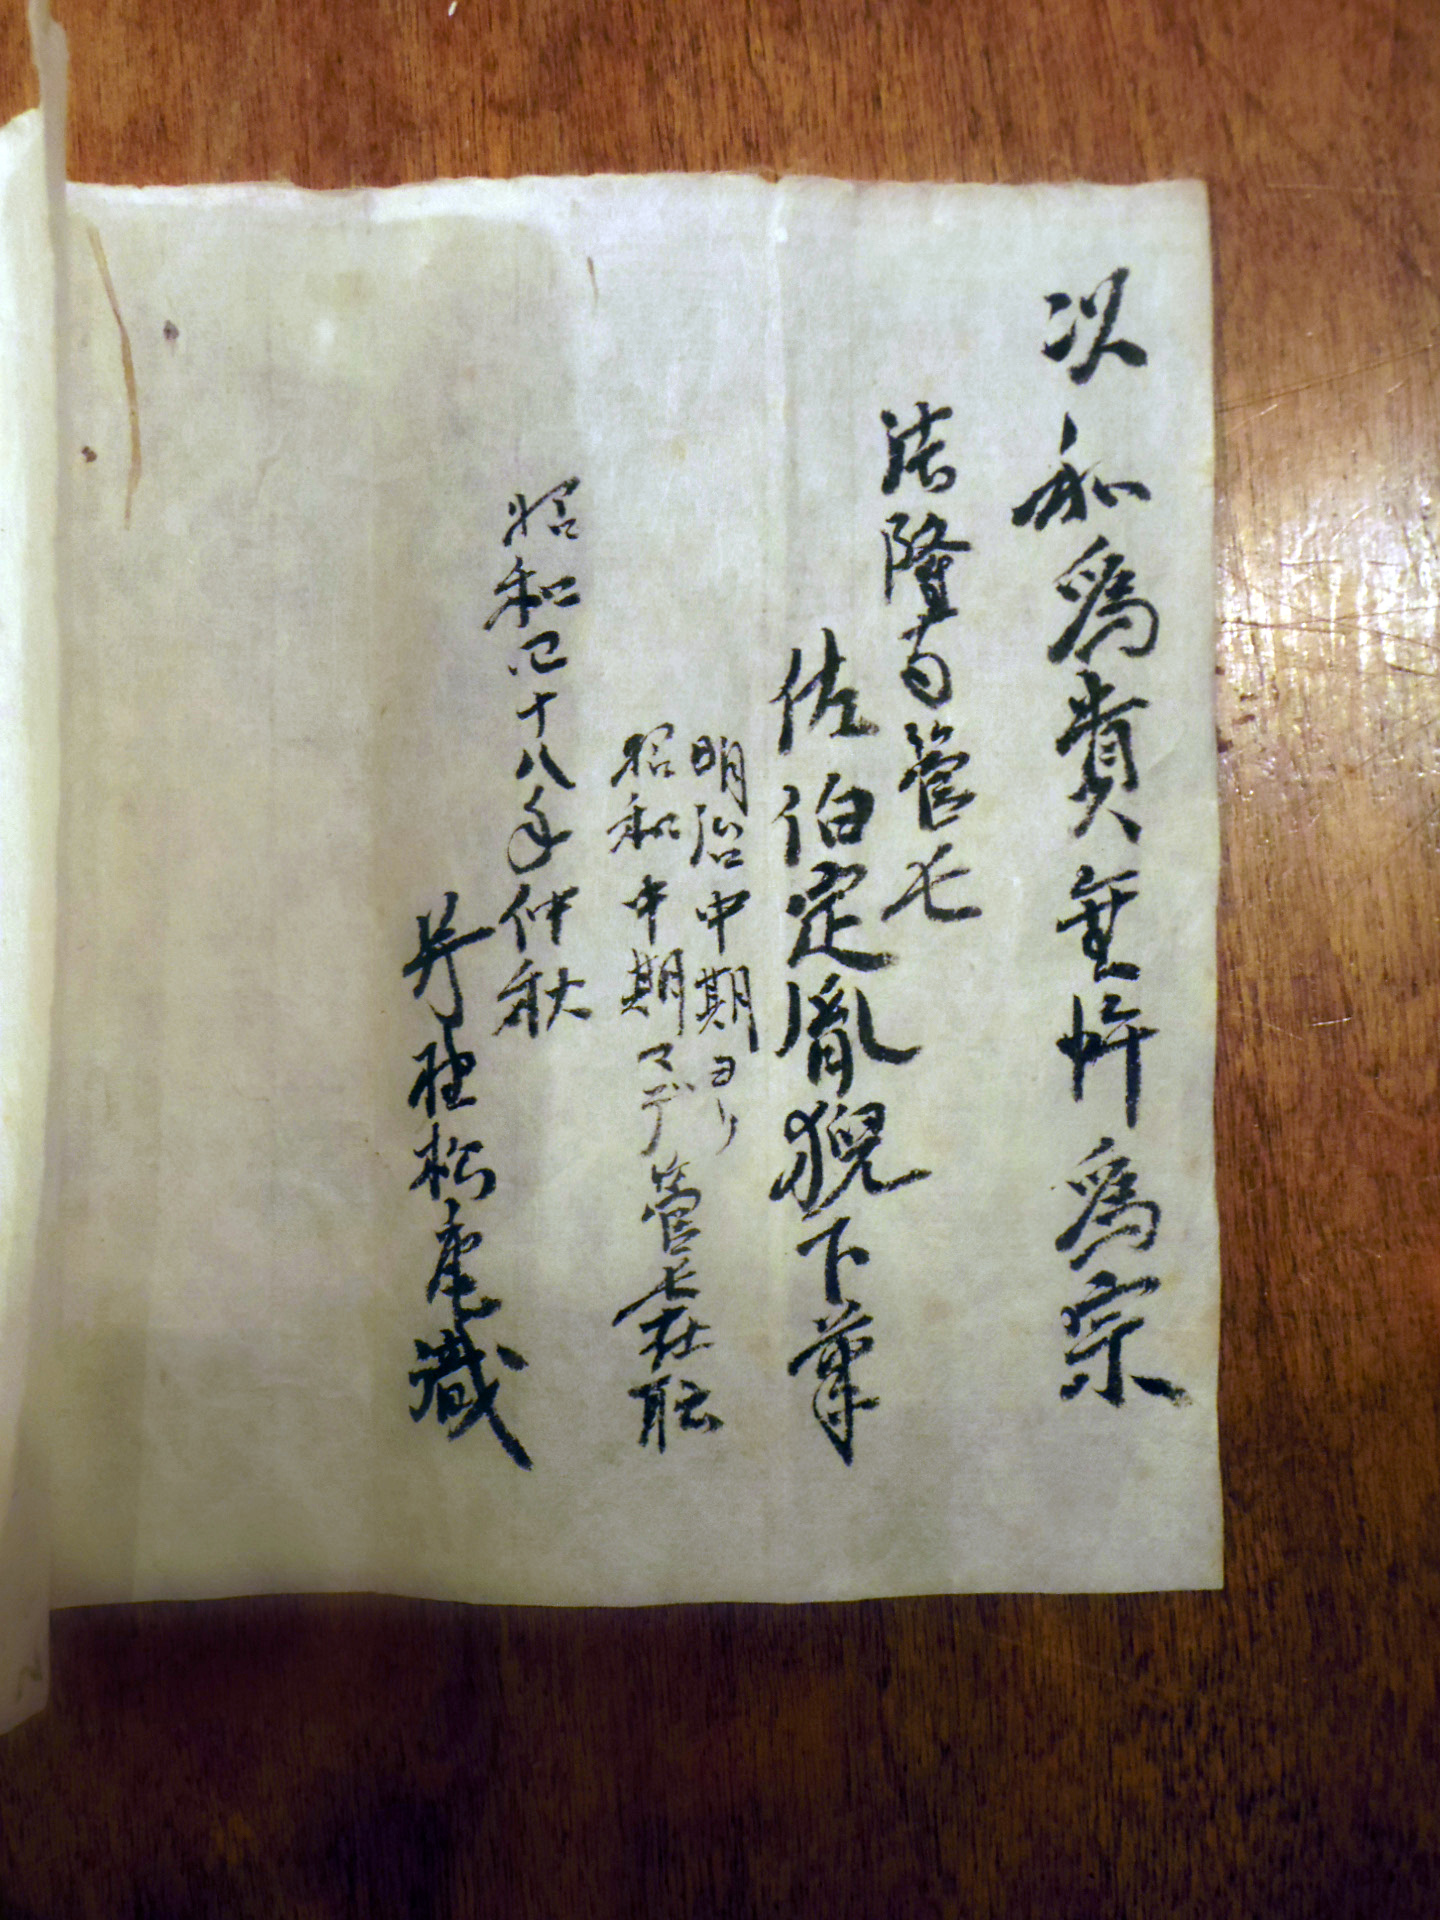 以和為貴無忤為宗
法隆寺管長
佐伯定胤猊下筆
明治中期ヨリ
昭和中期マデ管長在職
昭和四十八年仲秋
松庵識